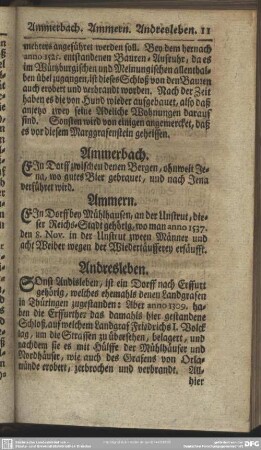 Ammerbach. Ammern. Andresleben. 11
mehrers angeführet werden soll. Bey dem hernach
anno 1525. entstandenen Bauren-Aufruhr, da es
im Würtzburgischen und Meinungischen allenthal-
ben übel zugangen, ist dieses Schloß von den Bauren
auch erobert und verbrandt worden. Nach der Zeit
haben es die von Hund wieder aufgebauet, also daß
anietzo zwey feine Adeliche Wohnungen darauf
sind. Sonsten wird von einigen angemercket, daß
es vor diesem Marggrafenstein geheissen.
Ammerbach.
EIn Dorff zwischen denen Bergen, ohnweit Je-
na, wo gutes Bier gebrauet, und nach Jena
verführet wird.
Ammern.
EIn Dorff bey Mühlhausen, an der Unstrut, die-
ser Reichs-Stadt gehörig, wo man anno 1537.
den 8. Nov. in der Unstrut zween Männer und
acht Weiber wegen der Wiedertäufferey ersäufft.
Andresleben.
SOnst Andisleben, ist ein Dorff nach Erffurt
gehörig, welches ehemahls denen Landgrafen
in Thüringen zugestanden: Aber anno 1309. ha-
ben die Erffurther das damahls hier gestandene
Schloß, auf welchem Landgraf Friedrichs I. Volck
lag, um die Strassen zu übersehen, belagert, und
nachdem sie es mit Hülffe der Mühlhäuser und
Nordhäuser, wie auch des Grafens von Orla-
münde erobert, zerbrochen und verbrandt. All-
hier